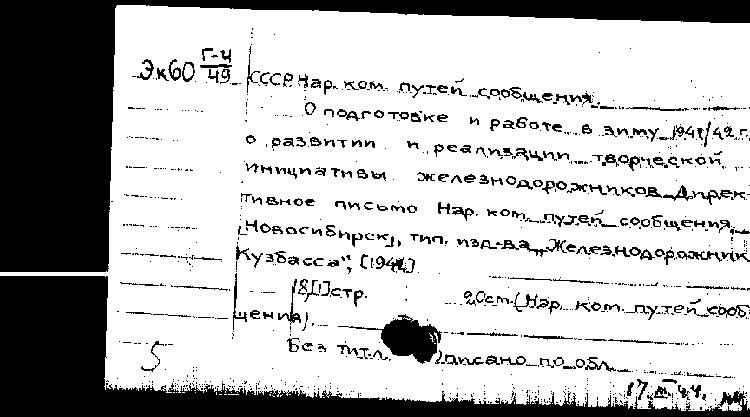 Эк60 Г-4/49 СССР Нар. ком. путей сообщения.
О подготовке и работе в зиму 1941/42 г.,
о развитии и реализации творческой
инициативы железнодорожников. Дирек-
тивное письмо Нар. ком. путей сообщения.
[Новосибирск], тип. изд-ва „Железнодорожник
Кузбасса", [1941]
18,[1]стр. 20см. (Нар. ком. путей сооб-
щения).
Без тит.л. писано по обл.
5
17 III 44.